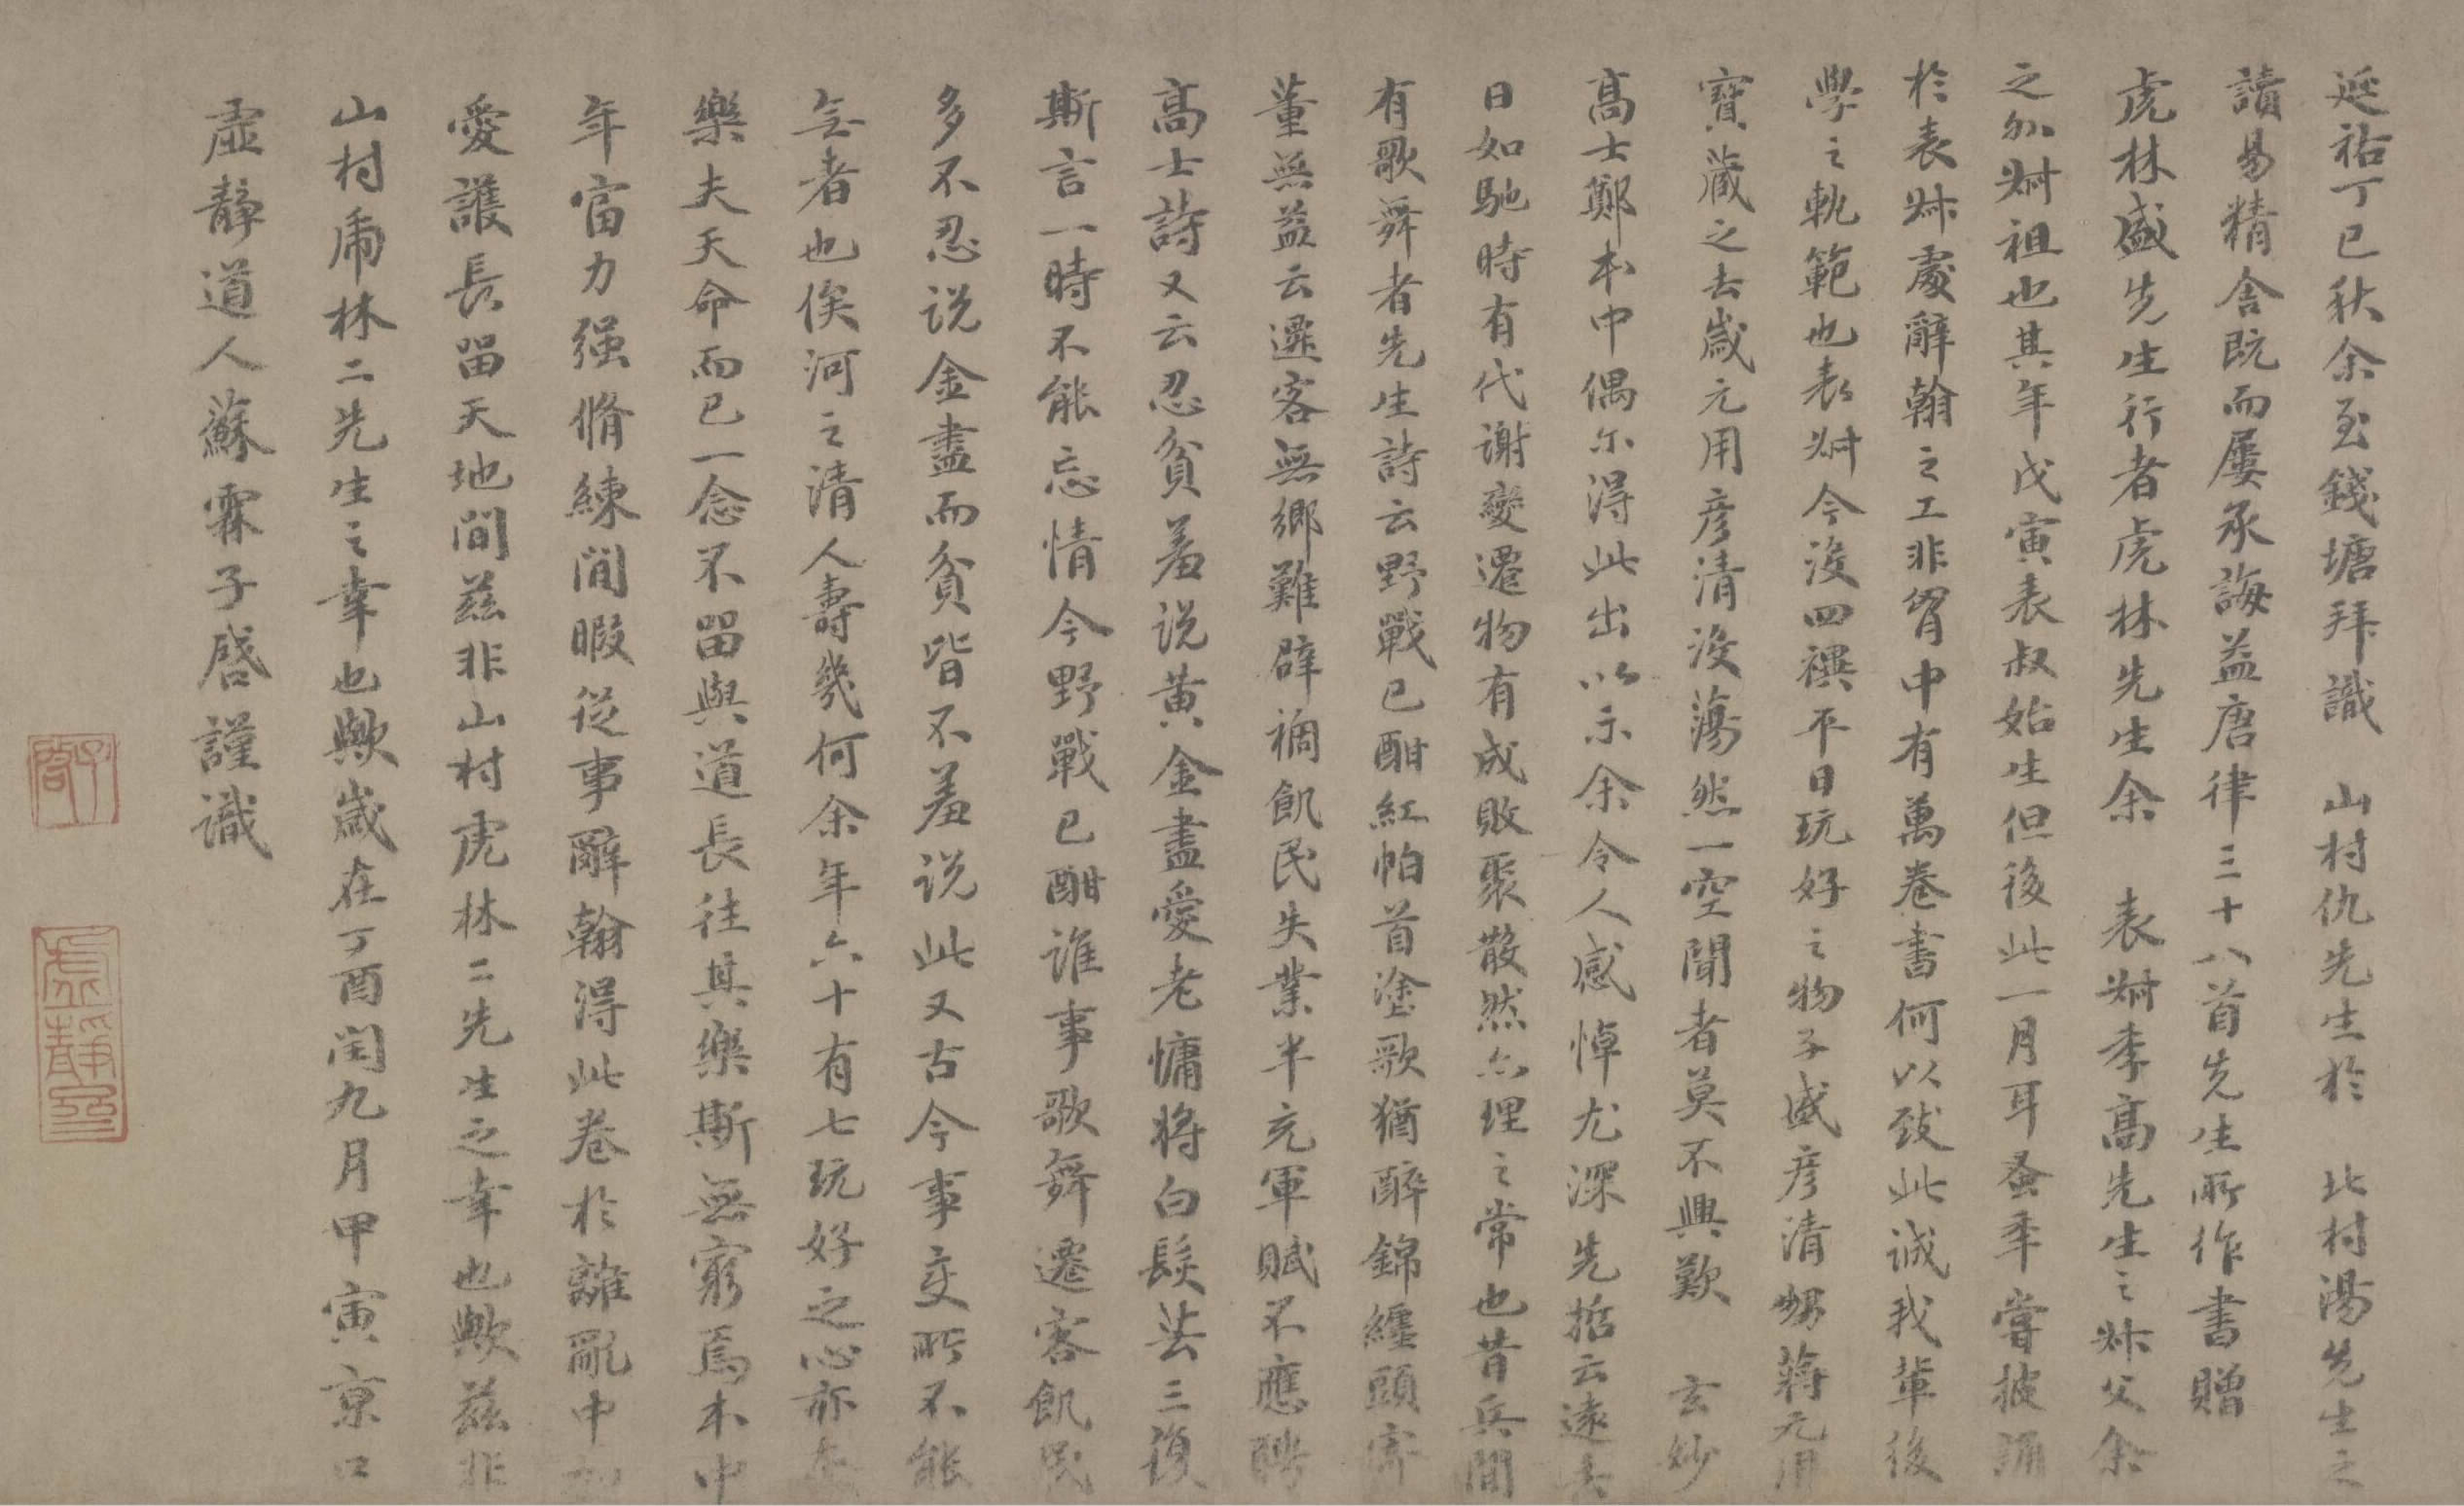 延祐丁巳秋余至錢塘拜識　山村仇先生於　北村湯先生之
讀易精舍既而屢承誨益唐律三十八首先生所作書贈
虎林盛先生行者虎林先生余　表叔季高先生之叔父余
之外叔祖也其年戊寅表叔始生但後此一月耳蚤年嘗披誦
於表叔處辭翰之工非胷中有萬卷書何以致此誠我輩後
學之軌範也表叔今沒四禩平日玩好之物子盛彥清甥蔣元用
寶藏之去歲元用彥清沒蕩然一空聞者莫不興歎　玄妙
高士鄭本中偶尔得此出以示余令人感悼尤深先哲云逺去
日如馳時有代謝變遷物有成敗聚散然亦理之常也昔兵間
有歌舞者先生詩云野戰已酣紅帕首塗歌猶醉錦纏頭寄
董無益云遷客無鄉難辟禍飢民失業半充軍賦不應聘
高士詩又云忍貧羞说黄金盡愛老慵將白髮芸三復
斯言一時不能忘情今野戰已酣誰事歌舞遷客飢民
多不忍说金盡而貧皆不羞说此又古今事变所不能
全者也俟河之清人壽幾何余年六十有七玩好之心亦
樂夫天命而已一念不留與道長往其樂斯無窮焉本中
年富力强脩練閒暇從事辭翰得此卷於離亂中
愛護長留天地間兹非山村虎林二先生之幸也歟兹非
山村虎林二先生之幸也歟歲在丁酉閏九月甲寅京口
虚静道人蘇霖子啓謹識
子啓
虛靜